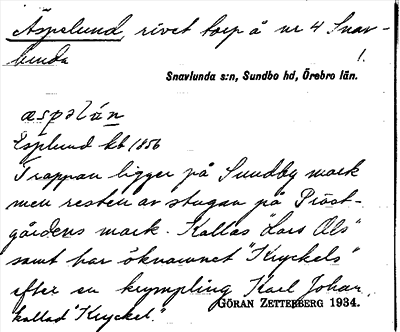 Äspelund, rivet torp å nr 4 Snav-
lunda 1.
Snavlunda s:n, Sundbo hd, Örebro län.
æspəlún
Esplund kb 1856
Trappan ligger på Sundby mark
men resten av stugan på Präst-
gårdens mark. Kallas "Lars Ols"
samt har öknamnet "Kryckels"
efter en krympling Karl Johan,
kallad "Kryckel."
GÖRAN ZETTERBERG 1934.